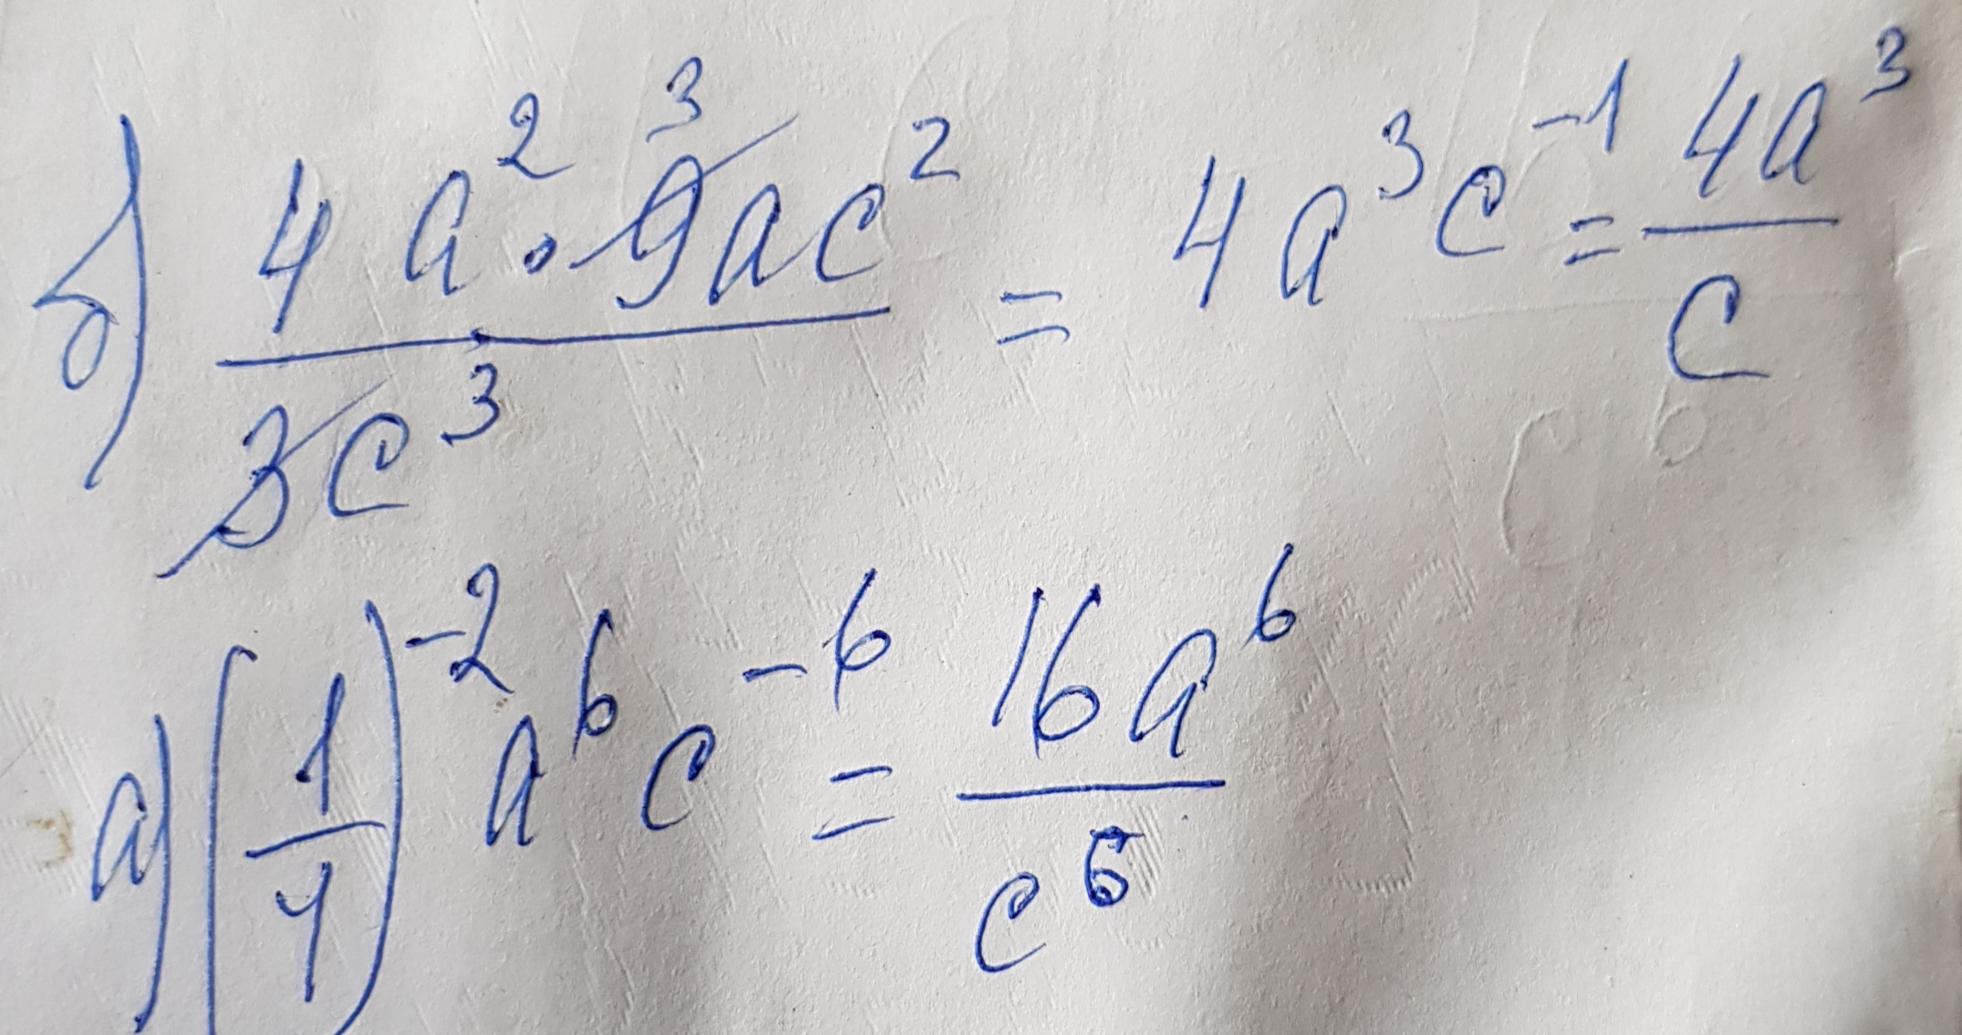 б) \frac{4 a^2 \cdot \cancel{9}^3 a c^2}{\cancel{3} c^3} = 4 a^3 c^{-1} = \frac{4a^3}{c}
а) \left(\frac{1}{4}\right)^{-2} a^6 c^{-6} = \frac{16 a^6}{c^6}